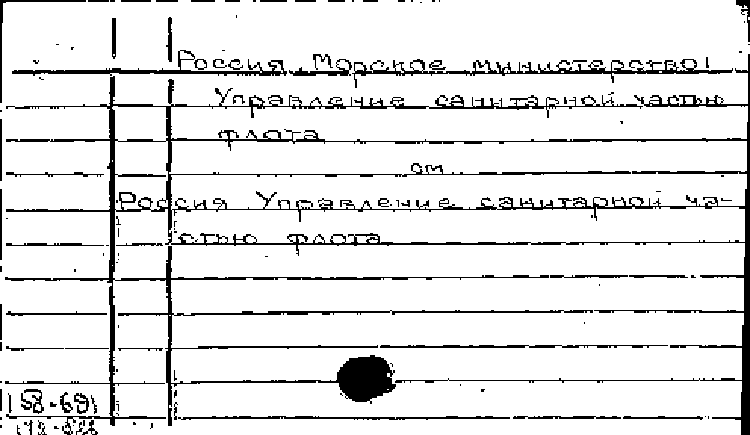 Россия. Морское министерство.
Управление санитарной частью
флота
см.
Россия Управление санитарной ча-
стью флота
158-69